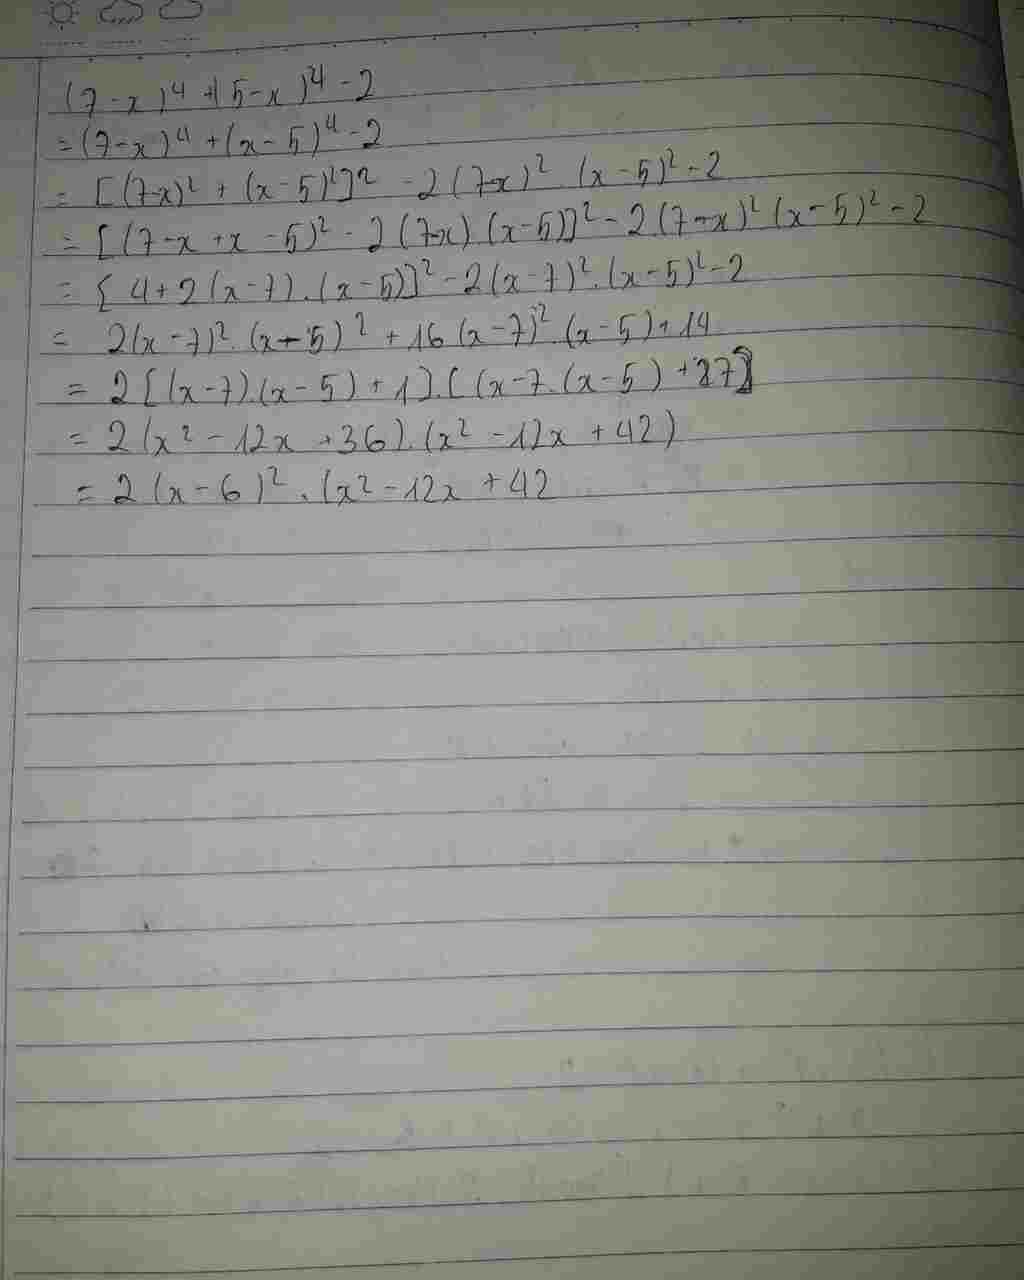 (7-x)⁴+(5-x)⁴-2
=(7-x)⁴+(x-5)⁴-2
= [(7-x)²+(x-5)²]²-2(7-x)².(x-5)²-2
= [(7-x+x-5)²-2(7-x).(x-5)]²-2(7-x)²(x-5)²-2
= [4+2(x-7).(x-5)]²-2(x-7)².(x-5)²-2
= 2(x-7)².(x-5)²+16(x-7)².(x-5)+14
= 2[(x-7).(x-5)+1].[(x-7.(x-5)+7]
= 2(x²-12x+36).(x²-12x+42)
= 2(x-6)².(x²-12x+42